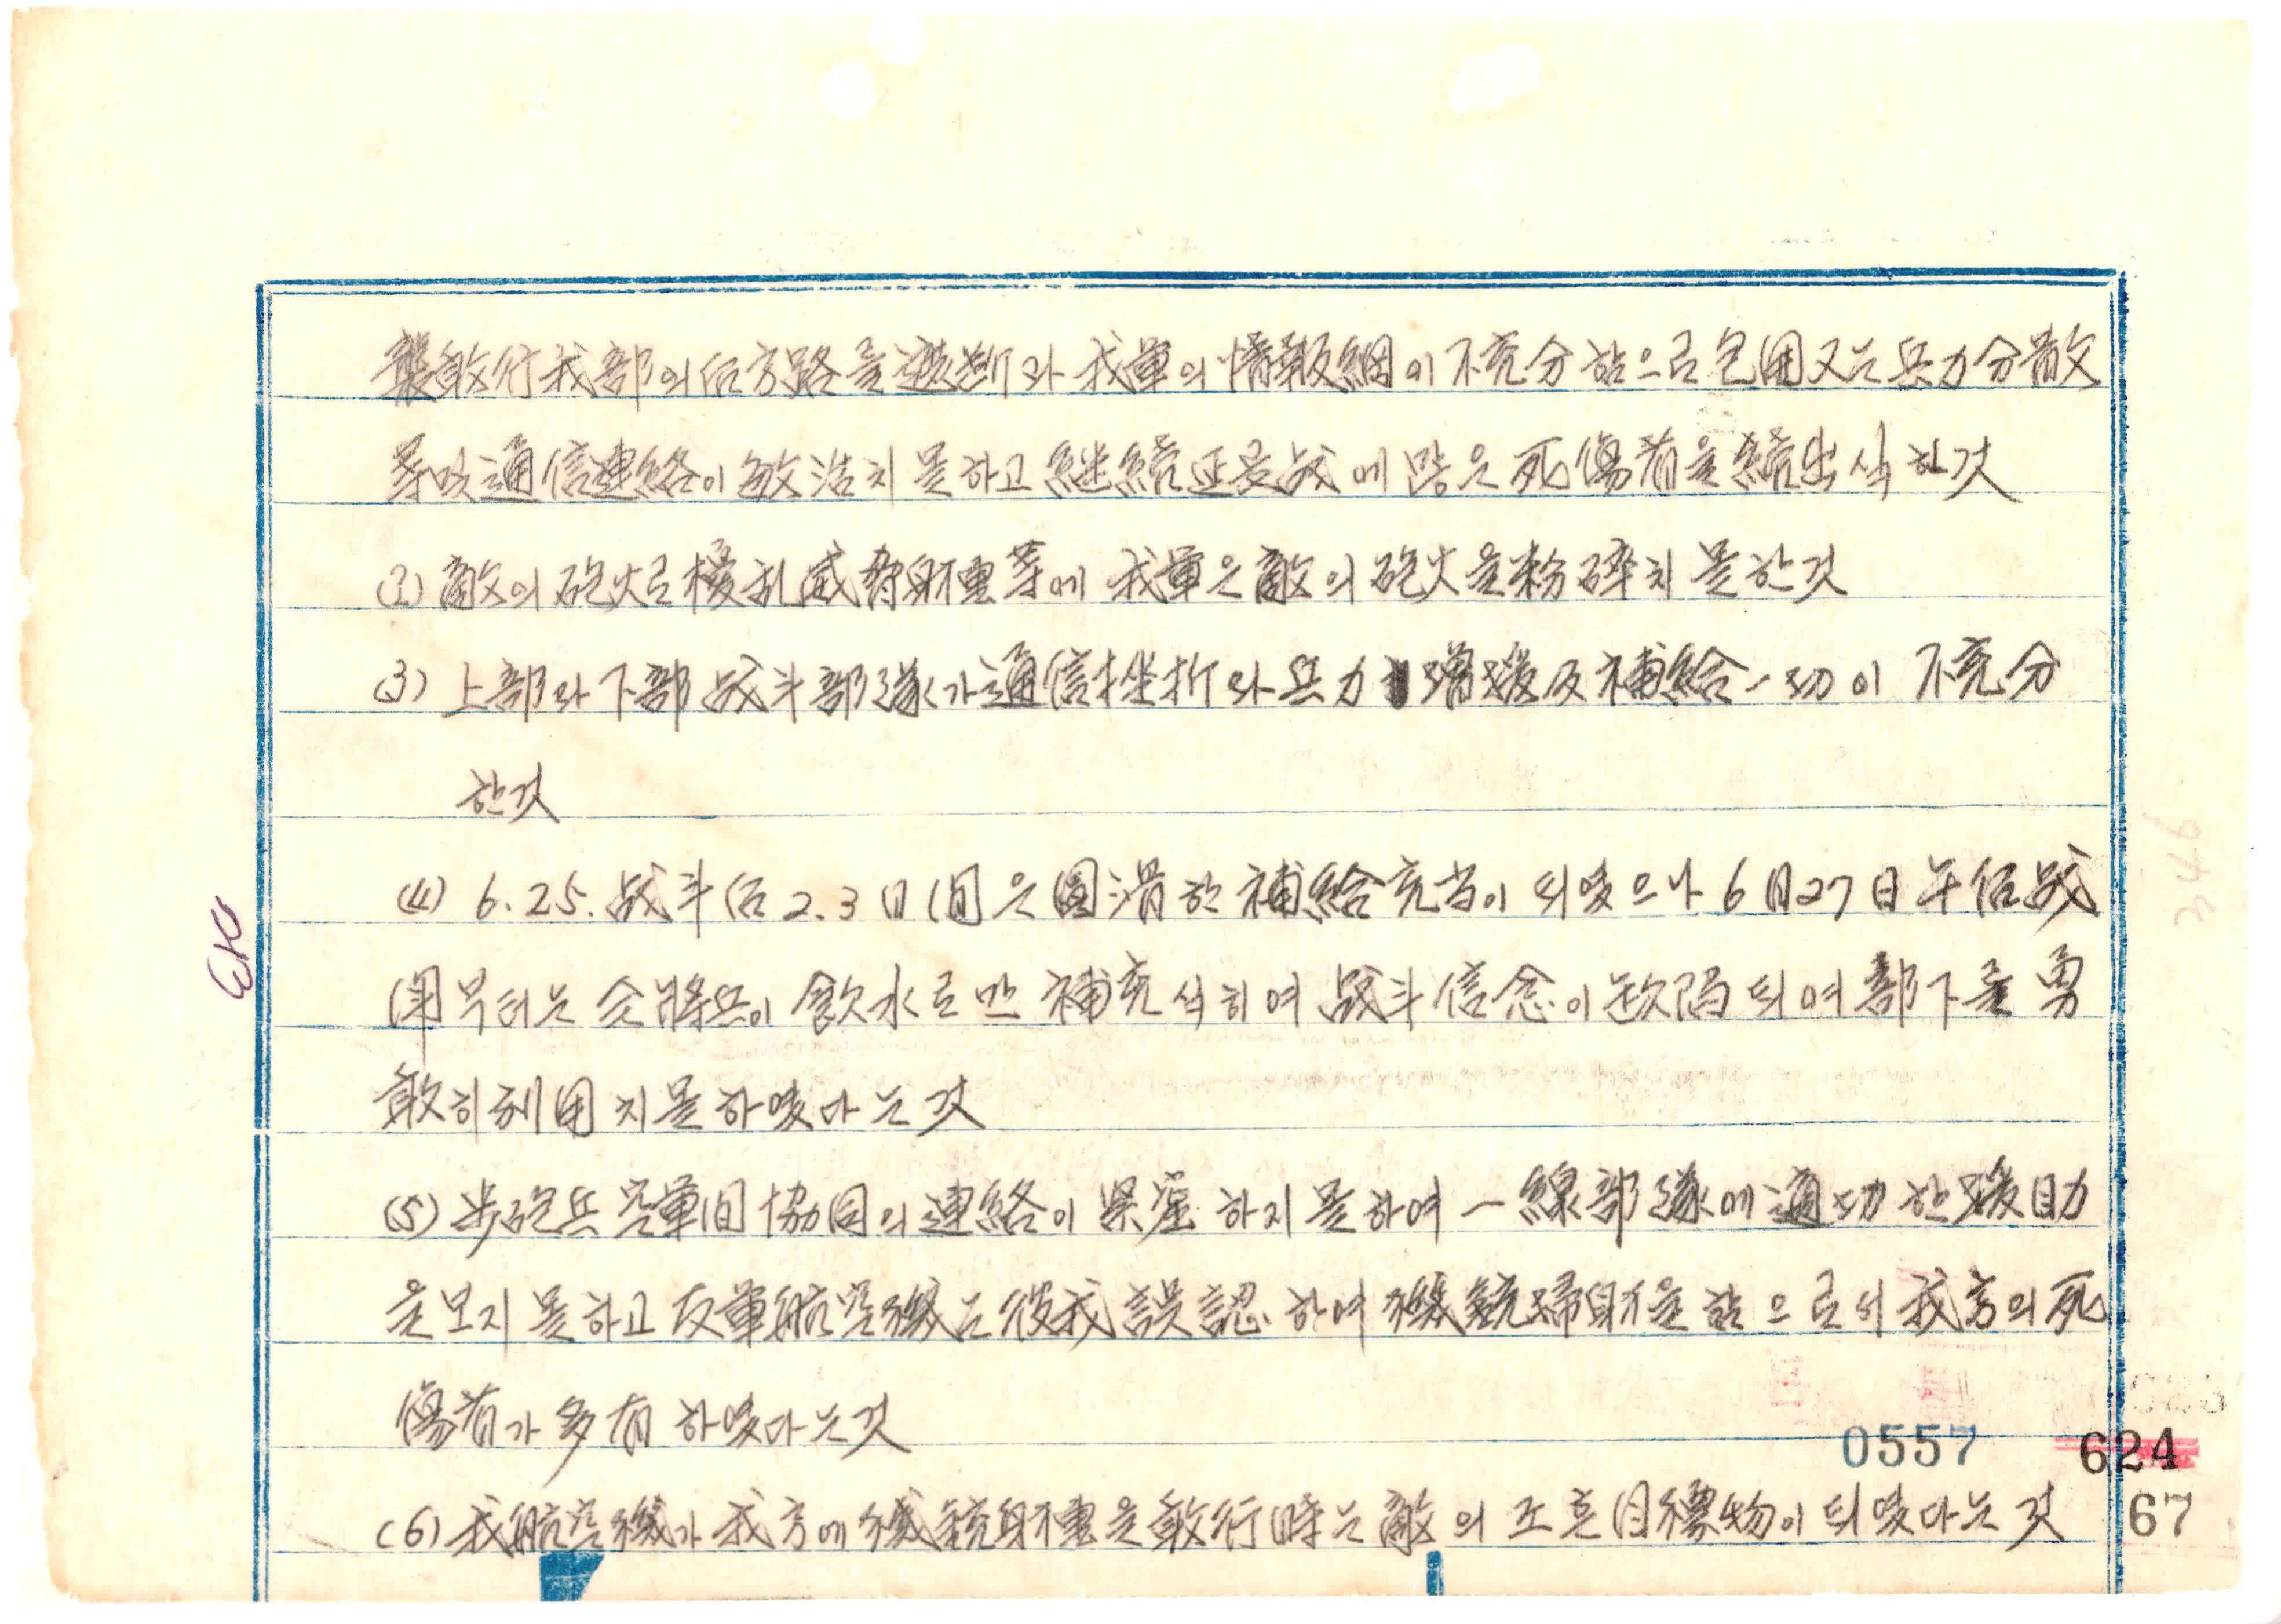 襲敢行我部의 后方路를 遮断와 我軍의 情報網이 不充分함으로 包囲又는 兵力分散
等 通信連絡이 敏活치 못하고 継続 正을 战에 많은 死傷者를 続出식한것
(2) 敵의 砲火로 撹乱威脅射撃等에 我軍은 敵의 砲火을 粉碎치 못한것
(3) 上部와 下部 战斗部隊가 通信挫折와 兵力 增援及補給一切이 不充分
한것
(4) 6.25. 战斗后 2.3日间은 圓滑한 補給充当이 되였으나 6月27日 午后 战
闭부터는 全將兵이 飮水로만 補充식히여 战斗信念이 欠陷되여 部下를 勇
敢히 利用치 못하였다는것
(5) 步砲兵空軍间 協同의 連絡이 緊密하지 못하여 一線部隊에 適切한 援助
을 보지 못하고 友軍航空機는 彼我誤認하여 機銃掃射을 함으로서 我方의 死
傷者가 多有하였다는것
(6) 我航空機가 我方에 機銃射撃을 敢行時는 敵의 目標物이 되였다는것
343
0557
624
67